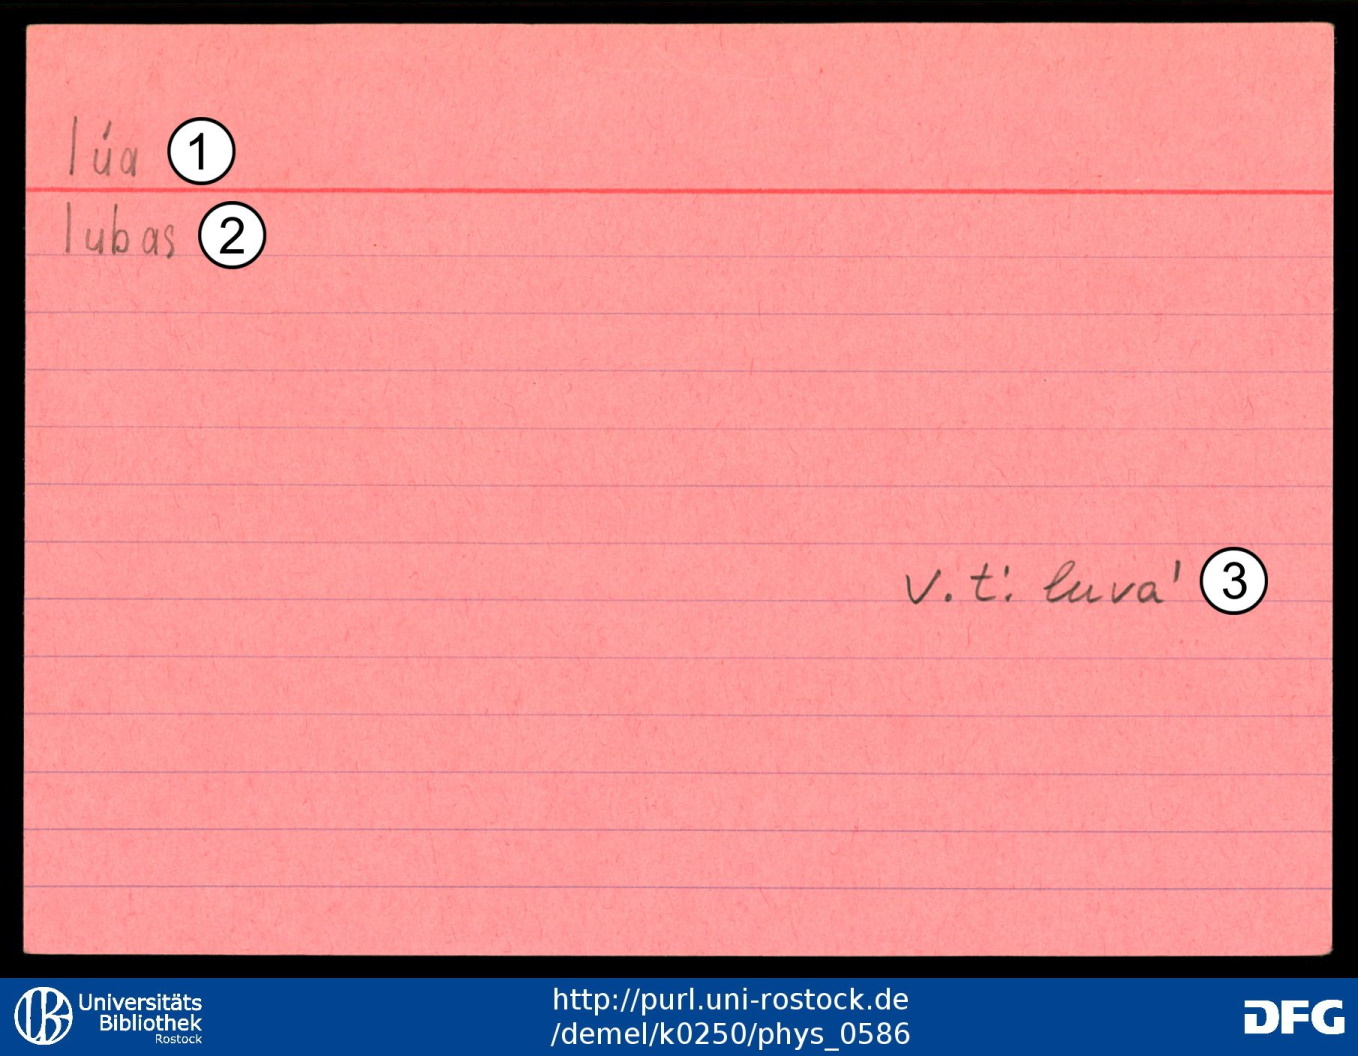 lúa 1
lubas 2
v. t: luva' 3
Universitäts
Bibliothek
Rostock
http://purl.uni-rostock.de
/demel/k0250/phys_0586
DFG